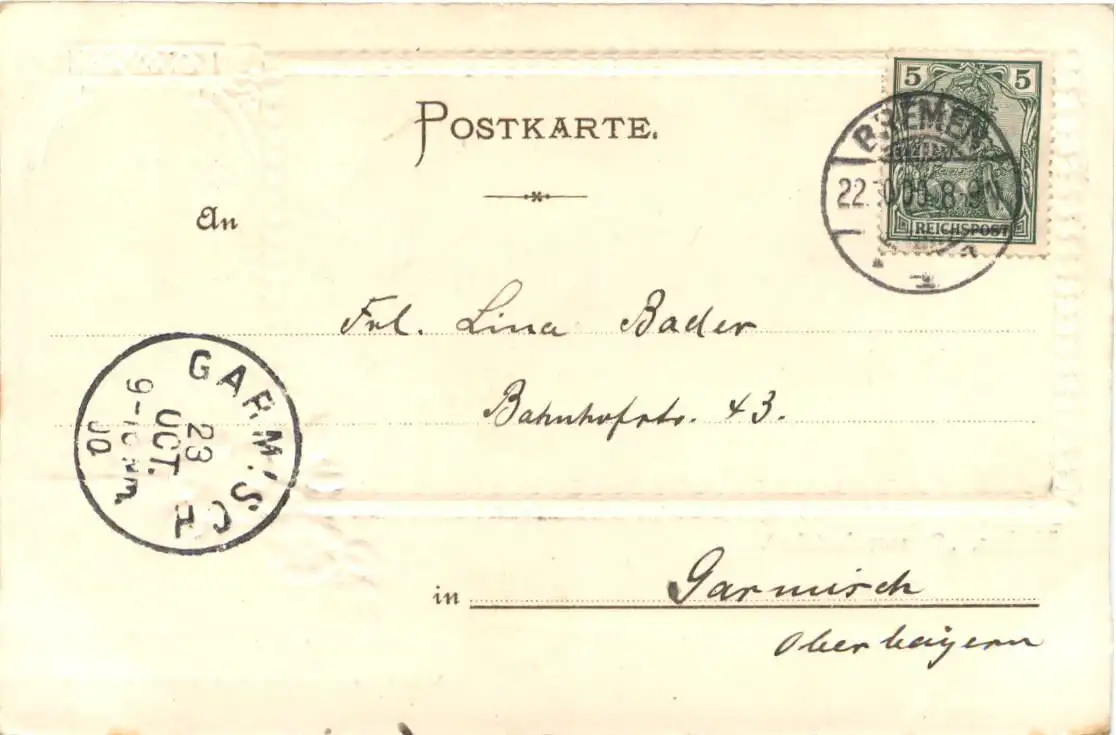 POSTKARTE.
5 5
BREMEN
22. 00. 8-9 N
REICHSPOST
An
Frl. Lina Bader
Bahnhofstr. 43.
GARMISCH
23
OCT.
9-10
00
in Garmisch
Oberbayern